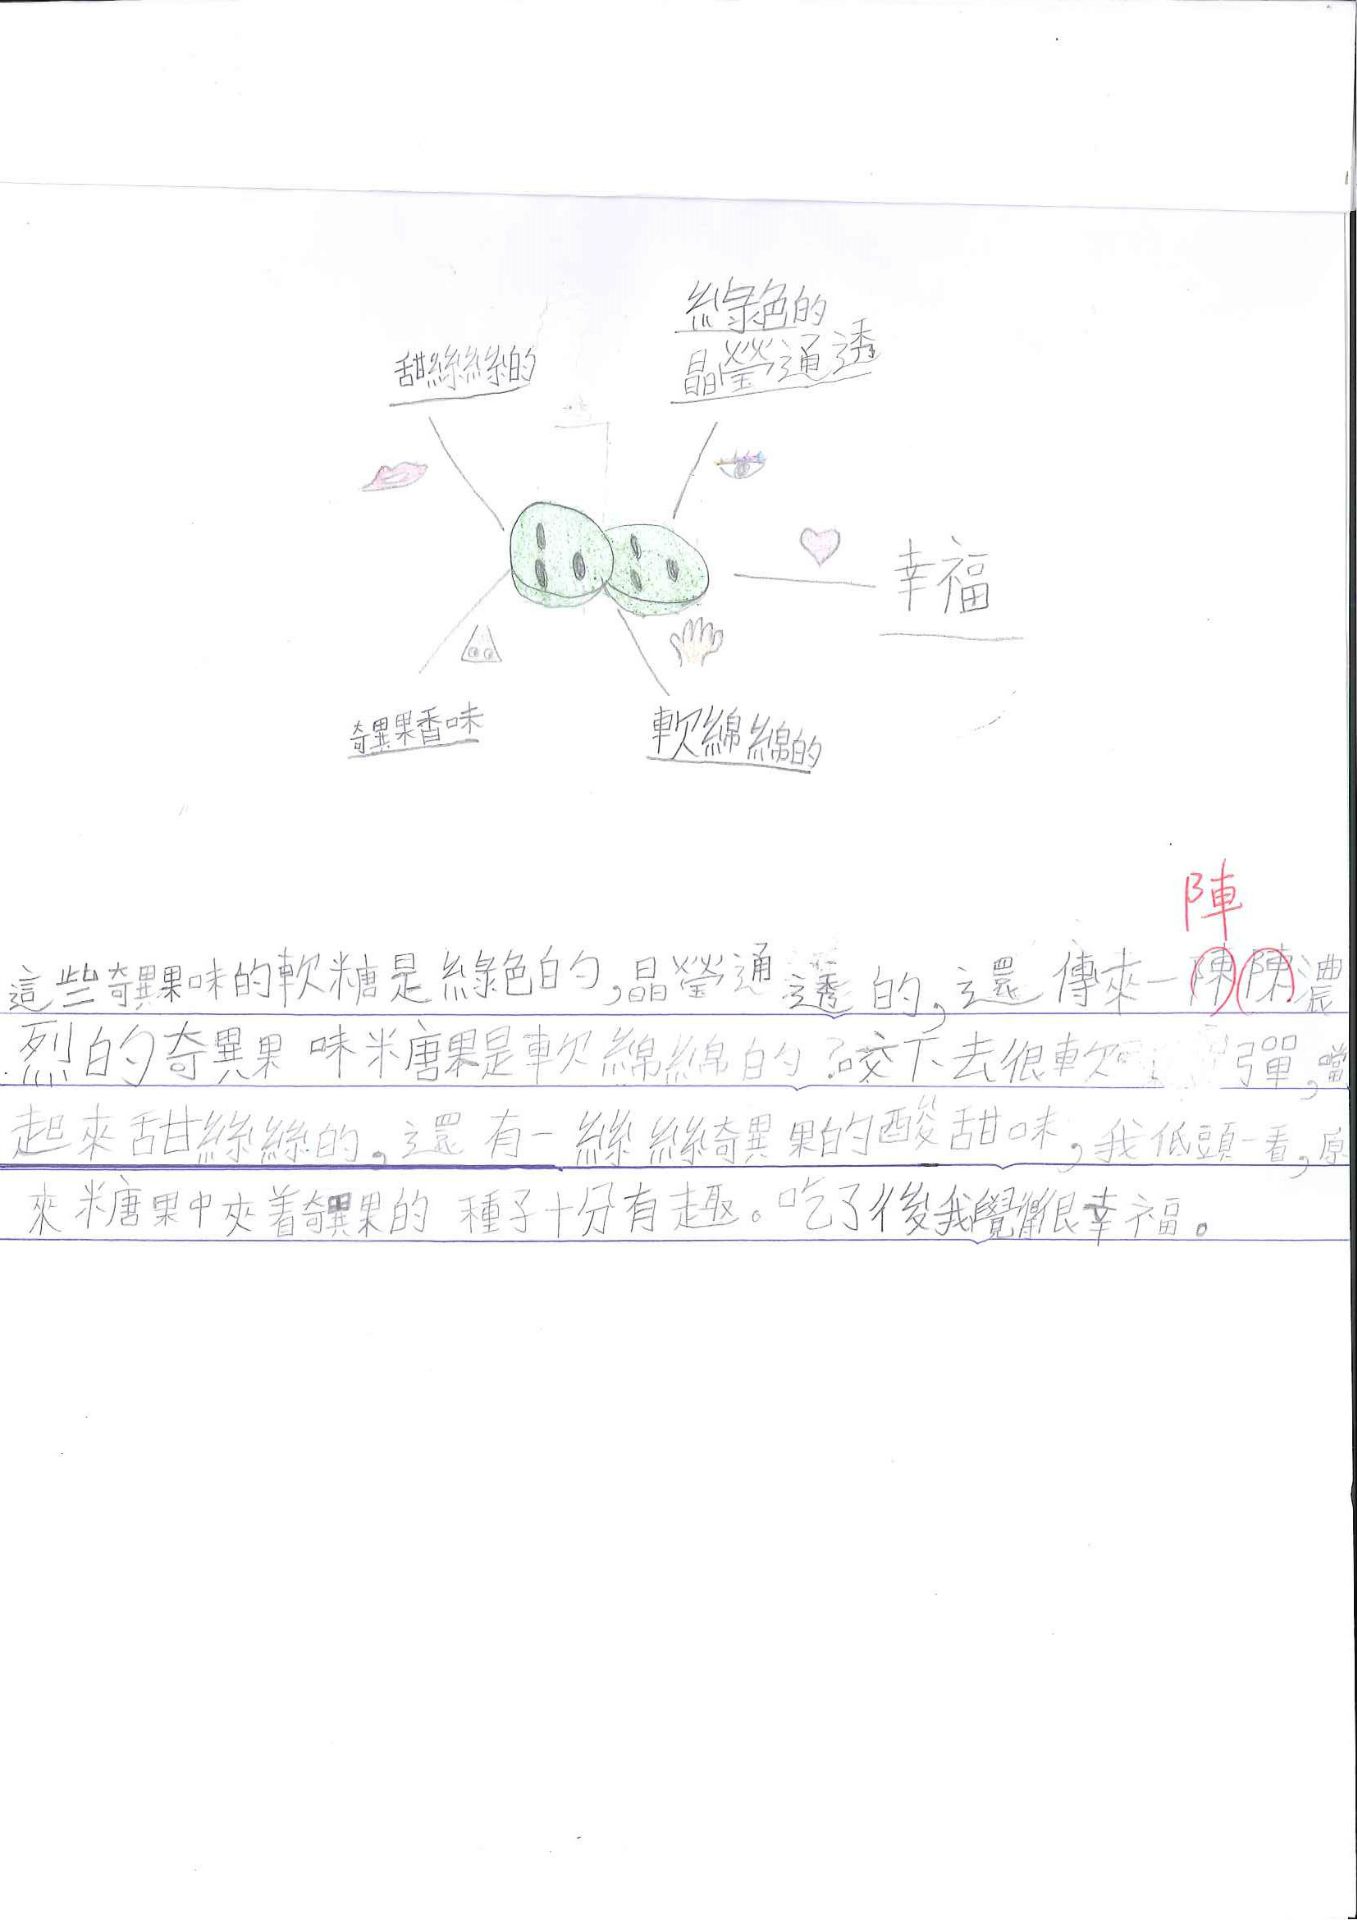 綠色的
晶瑩通透
甜絲絲的
幸福
奇異果香味
軟綿綿的
陣
這些奇異果味的軟糖是綠色的,晶瑩通透的,還傳來一陳陳濃
烈的奇異果味糖果是軟綿綿的?咬下去很軟彈,嚐
起來甜絲絲的,還有一絲絲奇異果的酸甜味,我低頭一看,原
來糖果中夾着奇異果的種子十分有趣。吃了後我覺得很幸福。